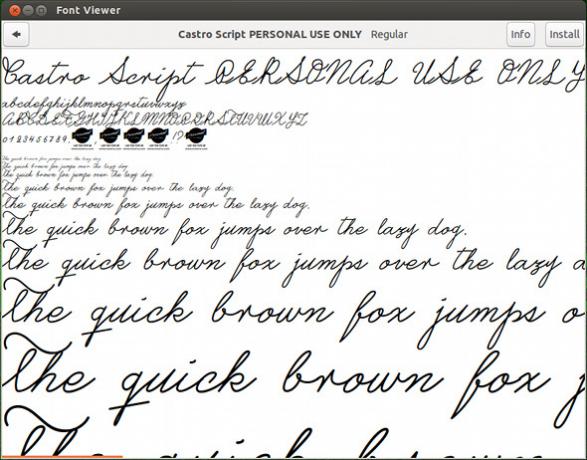 Font Viewer
Castro Script PERSONAL USE ONLY Regular
Info
Install
Castro Script PERSONAL USE ONLY
abcdefghijklmnopqrstuvwxyz
ABCDEFGHIJKLMNOPQRSTUVWXYZ
0123456789.
!?
the quick brown fox jumps over the lazy dog.
The quick brown fox jumps over the lazy dog.
The quick brown fox jumps over the lazy dog.
The quick brown fox jumps over the lazy dog.
The quick brown fox jumps over the lazy dog.
The quick brown fox jumps over the lazy dog.
The quick brown fox jumps over the lazy
The quick brown fox jumps
The quick brown fox
The quick brown